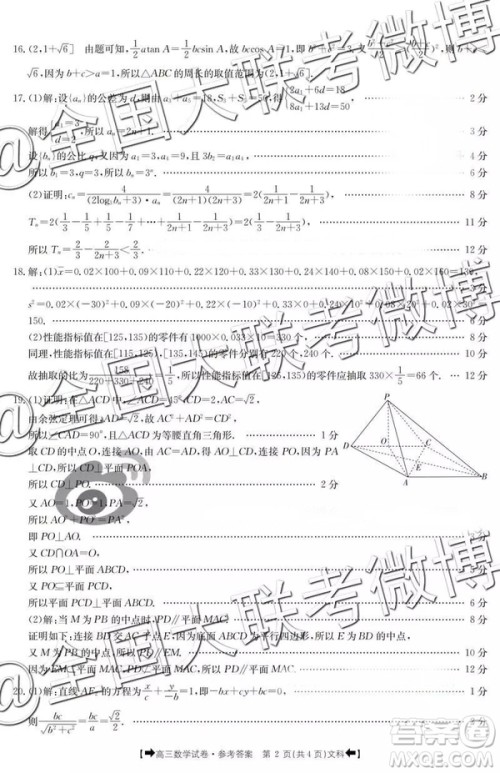 16.(2,1+√6] 由题可知,1/2 a tan A=1/2 bc sin A,故 bc cos A=1,即
√6,因为 b+c>a=1,所以△ABC的周长的取值范围为(2,1+√6].
17.(1)解:设{aₙ}的公差为d,则由 =18,S₃+S₅=50,得 2a₁+6d=18 8a₁+13d=50 2分
解得 a₁=3, d=2, 所以
设{bₙ}的公比 q, a₁=3,a₄=9,且3b₂=a₁a₄, 4分
所以b₁=3,q=3,所以bₙ=3ⁿ. 6分
(2)证明:cₙ=4/((2log₃bₙ+3)·aₙ)=4/((2n+1)(2n+3))=2(1/(2n+1)-1/(2n+3)) 8分
Tₙ=2(1/3-1/5+1/5-1/7+…+1/(2n+1)-1/(2n+3))=2(1/3-1/(2n+3)) 11分
所以Tₙ=2/3-2/(2n+3)<2/3. 12分
18.解:(1)x̄=0.02×100+0.09×110+0.22×120+0.33×130+0.24×140+0.08×150+0.02×160=130,
s²=0.02×(-30)²+0.09×(-20)²+0.22×(-10)²+0.33×0+0.24×10²+0.08×20²+0.02×30²=
150.
(2)性能指标值在[125,135)的零件有1000×0.033×10=330个. 8分
同理,性能指标值在[115,125),[135,145)的零件数分别为220个,240个. 10分
故抽取的比为158/(220+330+240)=1/5,所以性能指标值在[125,135)的零件应抽取330×1/5=66个. 12分
19.(1)证明:在△ACD中,∠ACD=45°,CD=2,AC=√2,
由余弦定理可得AD=√2,故AC²+AD²=CD²,
所以∠CAD=90°,且△ACD为等腰直角三角形. 1分
取CD的中点O,连接AO,由AC=AD,得AO⊥CD,连接PO,因为
所以CD⊥平面POA,
所以CD⊥PO. 2分
又AO=1,PO=1,PA=√2,
所以AO²+PO²=PA²,
即PO⊥AO.
又CD∩OA=O,
所以PO⊥平面ABCD.
又PO⊂平面PCD,
所以平面PCD⊥平面ABCD. 6分
(2)解:当M为PB的中点时,PD∥平面MAC.
证明如下:连接BD交AC于点E,因为四边形ABCD为平行四边形,所以E为BD的中点.
又M为PB的中点,所以PD∥EM. 10分
因为EM⊂平面MAC,PD⊄平面MAC,所以PD∥平面MAC. 12分
20.(1)解:直线AE₁的方程为x/c+y/-b=1,即-bx+cy+bc=0. 1分
则bc/√(b²+c²)=bc/a=√2/2.
P
D
O
C
E
A
B
➡高三数学试卷·参考答案 第2页(共4页)文科➡
@全国大联考微博
@全国大联考微博
答案圈